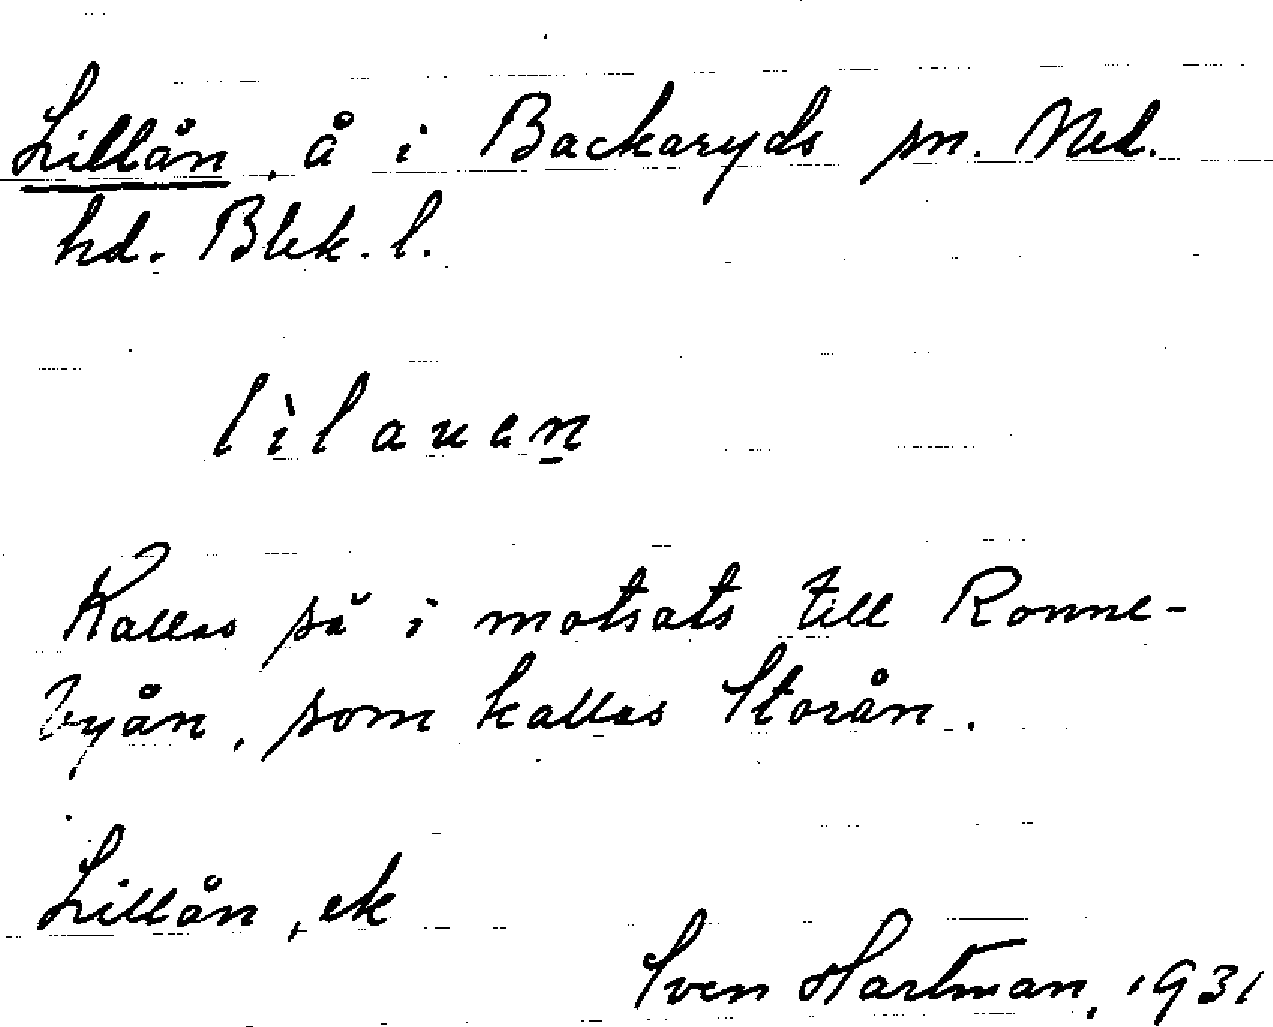 Lillån, å i Backaryds sn. Med.
hd. Blek. l.
lìlauen̲
Kallas så i motsats till Ronne-
byån, som kallas Storån.
Lillån, ek
Sven Hartman, 1931